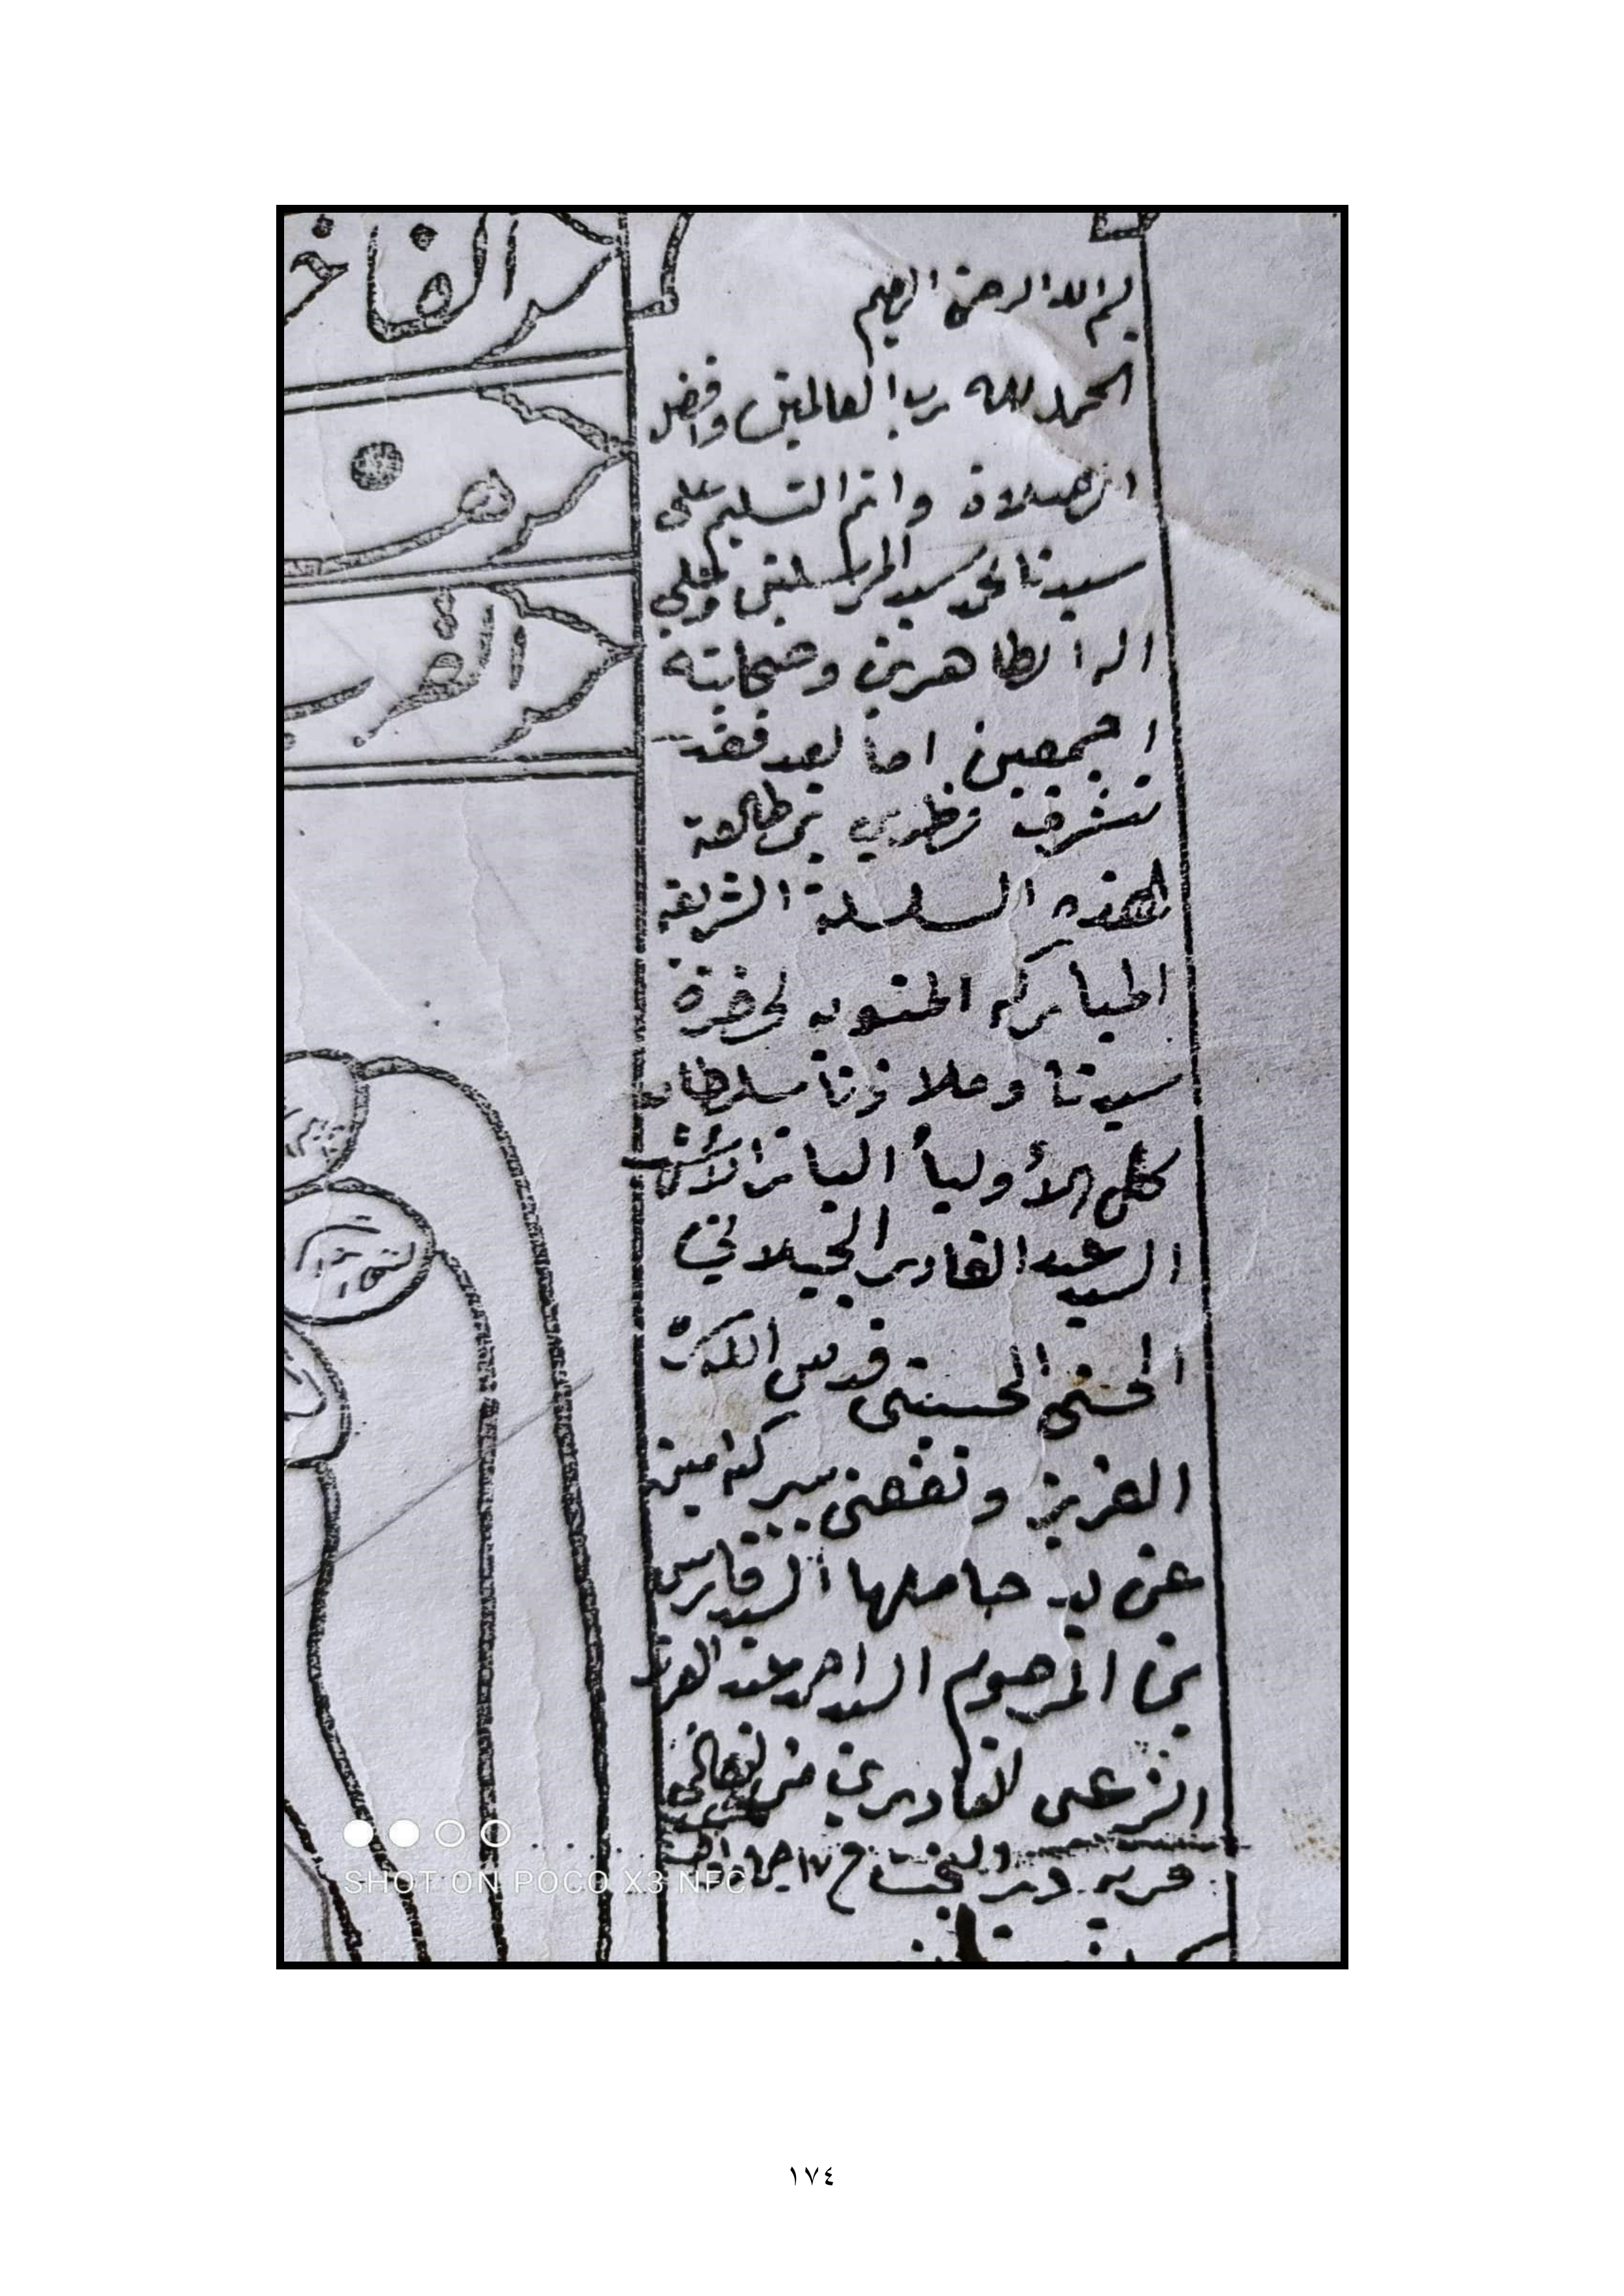 بسم الله الرحمن الرحيم
الحمد لله رب العالمين وافضل
الصلاة واتم التسليم على
سيدنا محمد سيد المرسلين وعلى
اله الطاهرين وصحابته
اجمعين اما بعد فقد
تشرف نظري بمطالعة
هذه السلسلة الشريفة
المباركه المنسوبه لحضرة
سيدنا وملاذنا سلطان
كل الأوليأ الباز الأشهب
السيد عبد القادر الجيلاني
الحسني الحسيني قدس الله سره
العزيز ونفعني ببركته امين
عن يد حاملها السيد فارس
بن المرحوم السيد احمد عبد العزيز
الزعبي القادري من
قريه دير البخت
الفاخر
هو
القرب
SHOT ON POCO X3 NFC
١٧٤